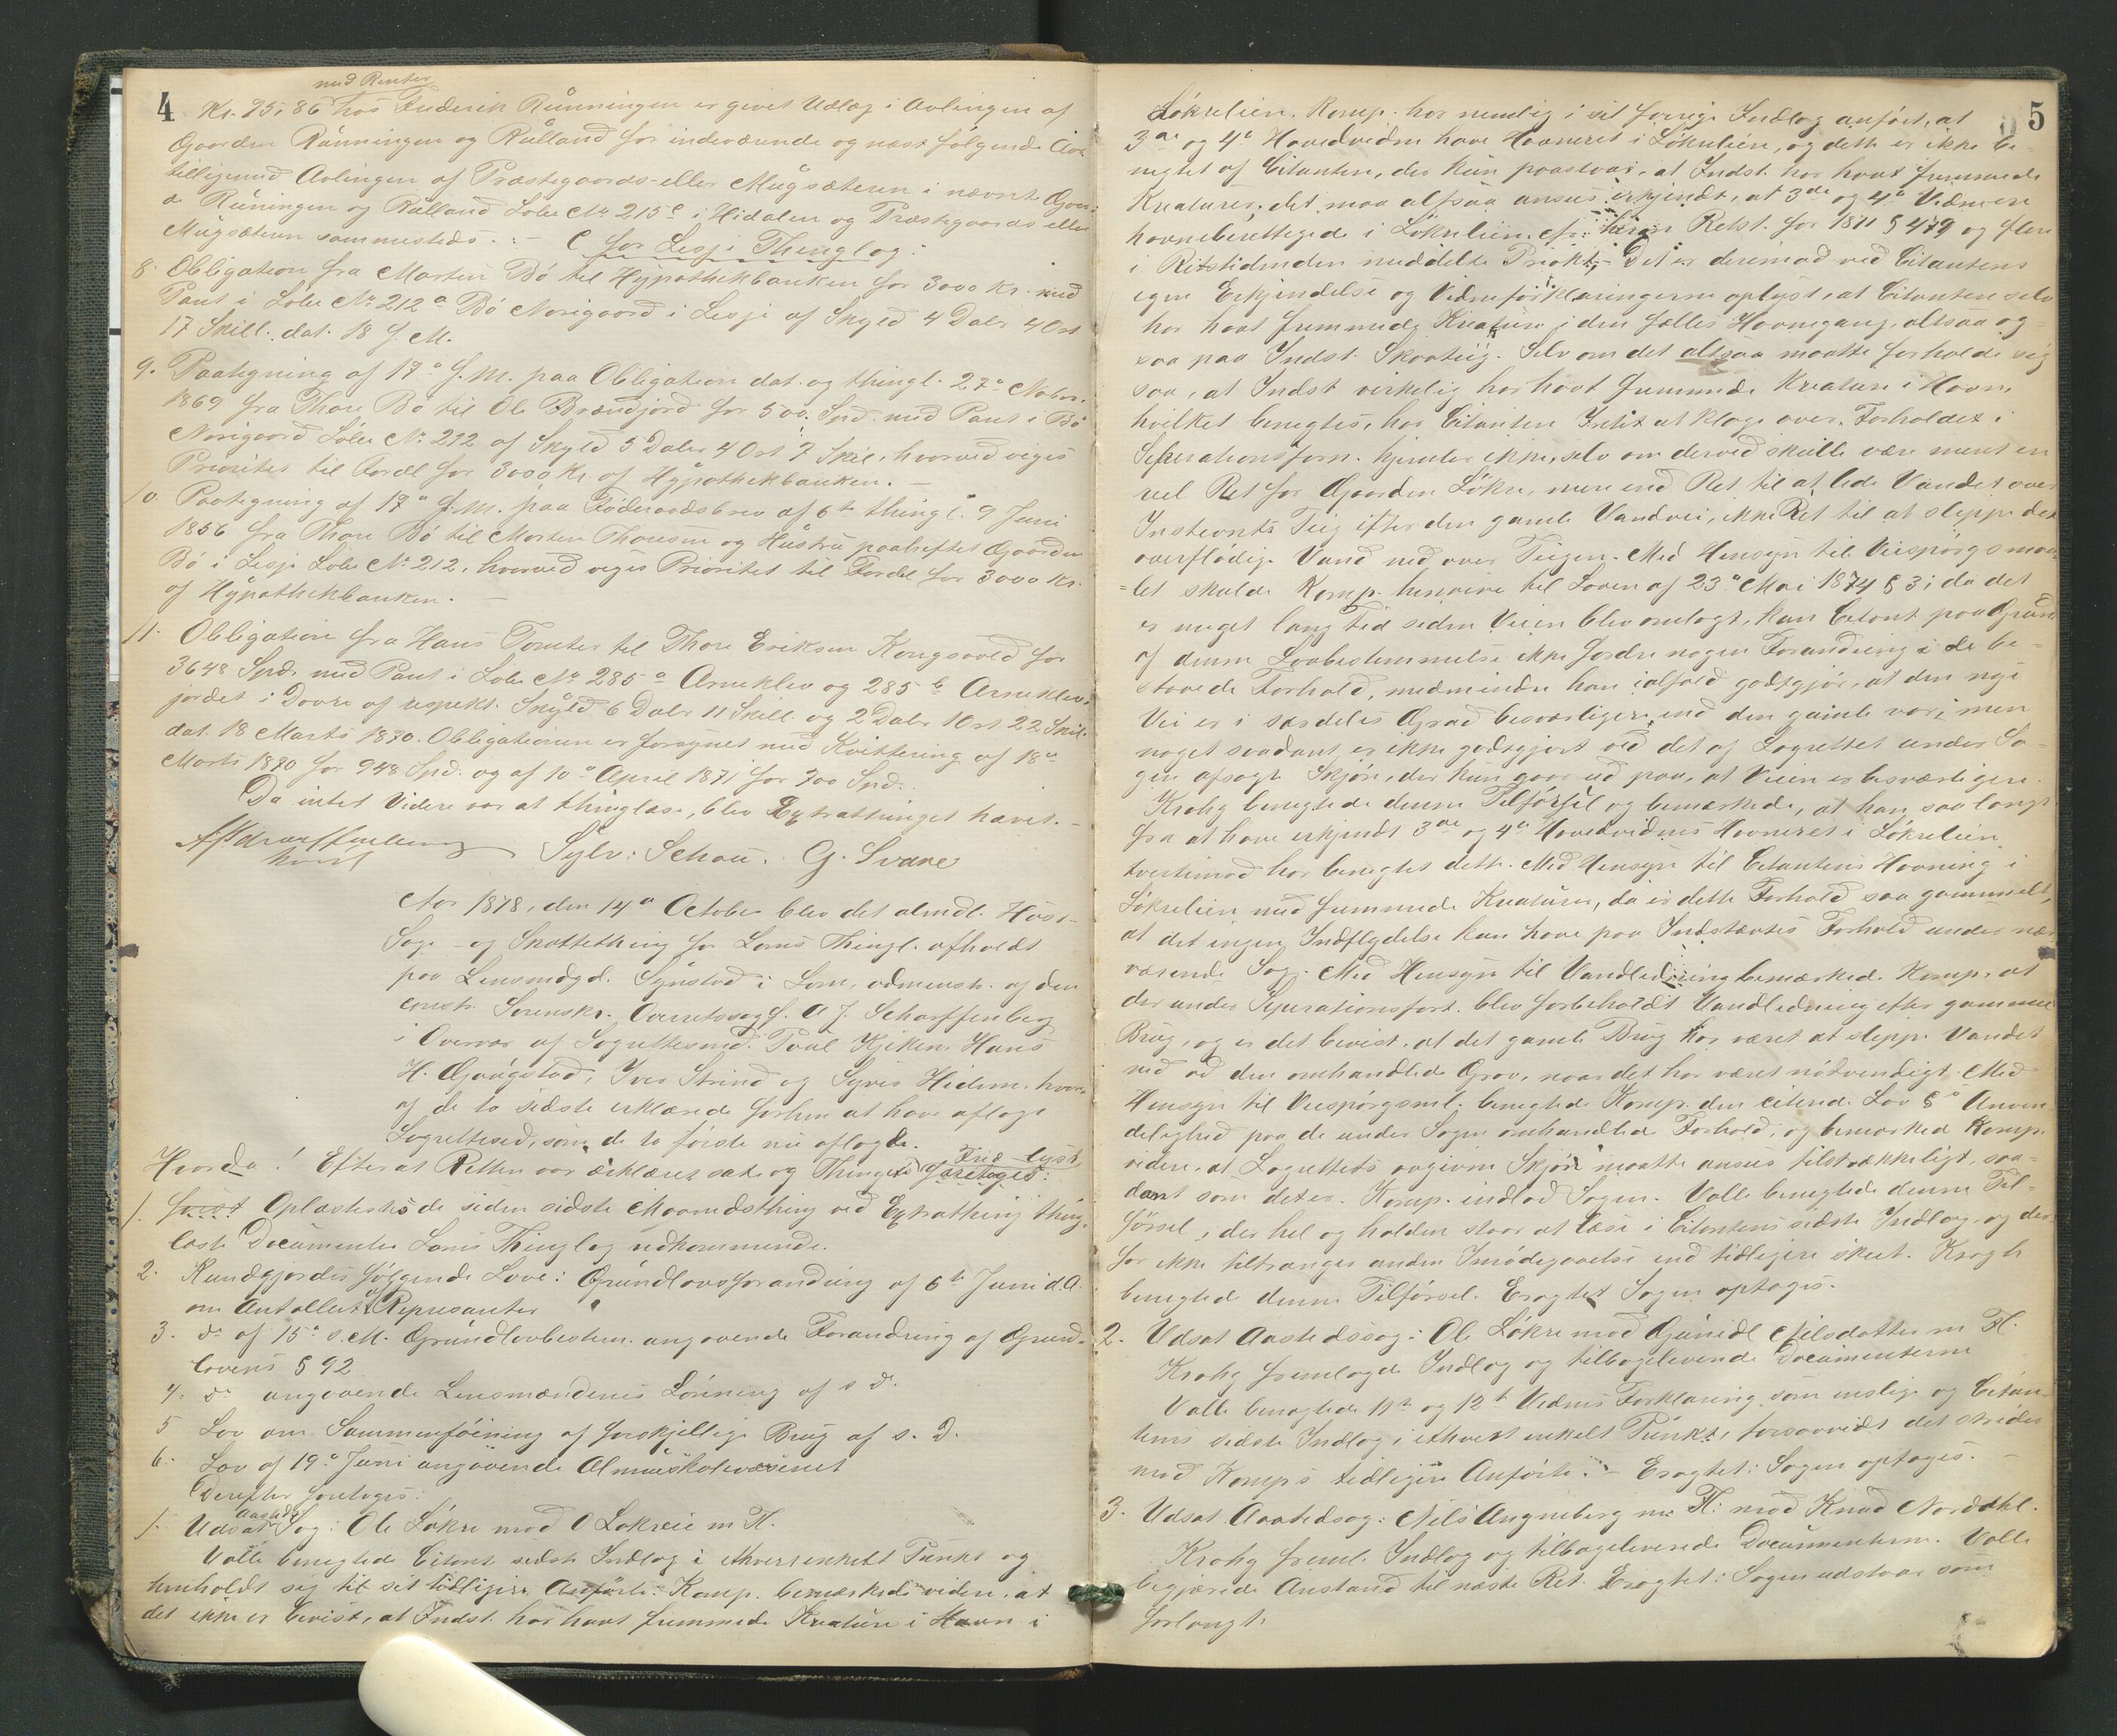 4
med Renter
Kr. 75,86 hos Frederik Rünningen er givet Udlæg i Avlingen af
Gaarden Rünningen og Rülland for indeværende og næst følgende Aar
tilligemed Avlingen af Præstegaards- eller Mügsæteren i nævnte Gaar-
de Rüningen og Rülland Løbe No 215 c i Hidalen og Præstegaards eller
Mügsæteren sammesteds. : — C for Lesje Thinglag:
8. Obligation fra Morten Bö til Hypothekbanken for 3000 Kr. med
Pant i Løbe No 212 a Bö Norigaard i Lesje af Skyld 4 Daler 4 Ort
17 Skill. dat. 18 f. M.
9. Paategning af 17 de f. M. paa Obligation dat. og thingl. 27 de Novbr.
1869 fra Thore Bö til Ole Brændjord for 500 Spd. med Pant i Bö
Norigaard Løbe No 212 af Skyld 5 Daler 4 Ort 7 Skil. hvorved viges
Prioritet til Fordel for 3000 Kr. af Hypothekbanken. —
10. Paategning af 17 de f. M. paa Föderaadsbrev af 6 te thingl. 9 Juni
1856 fra Thore Bö til Morten Thoresen og Hüstrü paaheftet Gaarden
Bö i Lesje Løbe No 212, hvorved viges Prioritet til Fordel for 3000 Kr.
af Hÿpothekbanken. —
11. Obligation fra Hans Tomter til Thore Eriksen Kongsvold for
3648 Spd. med Pant i Løbe No 285 a Arneklev og 285 b Arneklev-
jordet i Dovre af respekt. Skyld 6 Daler 11 Skill. og 2 Daler 1 Ort 22 Skil.
dat. 18 Marts 1870. Obligationen er forsynet med Kvittering af 18 de
Marts 1870 for 948 Spd. og af 10 de April 1871 for 700 Spd.
Da intet Videre var at thinglæse, blev Extrathinget hævet. —
Sylv: Schou. G. Svare
Aar 1878, den 14 de October blev det almdl. Höst-
Sage- og Skattething for Loms Thingl. afholdt
paa Lensmdgd. Synstad i Lom, administr. af den
const. Sorenskr. Overretssagf. A J. Scharffenberg
i Overvær af Lagrettesmd. Paal Kjiken, Hans
H. Gaügstad, Iver Strind og Syver Hidem, hvor-
af de to sidste erklærede förhen at have aflagt
Lagretteseed, som de to første nü aflagde.
Hvorda! Efterat Retten var erklæret sat og Thinget Fred lyst, foretoges:
1. först Oplæstes de siden sidste Maanedsthing ved Extrathing thing-
læste Documenter Loms Thinglag vedkommende.
2. Kundgjordes følgende Love: Grundlovsforandring af 6 te Juni d. A.
om Antallet af Repræsanter
3. do af 15 de s. M. Grundlovbestem. angaaende Forandring af Grund-
lovens § 92
4. do angaaende Lensmændenes Lönning af s D.
5 Lov om Sammenföining af forskjellige Brug af s. D.
6. Lov af 19 de Juni angaaende Almueskolevæsenet
Derefter foretoges:
1. Udsat Aasteds Sag: Ole Løkre mod O Lokreie m Fl.
Valle benegtede Citant. sidste Indlæg i ethvert enkelt Punkt og
henholdt sig til sit tidligere Anførte. Komp. bemærkede videre, at
det ikke er bevist, at Indst. har havt fremmede Kreature i Havn i
5
Løkrelien. Komp. har nemlig i sit forrige Indlæg anført, at
3 die og 4 de Hovedvidne have Havneret i Løkrelien, og dette er ikke be-
negtet af Citanten, der kun paastaar, at Indst. har havt fremmede
Kreaturer; det maa altsaa anses erkjendt, at 3 die og 4 de Vidne er
havneberettigede i Løkrelien, cfr. herom Retst. for 1871 § 479 og flere
i Retstidenden meddelte Præjud. — Det er derimod ved Citantens
egen Erkjendelse og Vidneforklaringerne oplyst, at Citanten selv
har havt fremmede Kreature i den fælles Havnegang, altsaa og-
saa paa Indst. Skovteig. Selv om det altsaa maatte forholde sig
saa, at Indst. virkelig har havt fremmede Kreature i Havn,
hvilket benegtes, har Citanten Intet at klage over. Forholdet i
Seperationsforr. hjemler ikke, selv om derved skulle være ment en
reel Ret for Gaarden Løkre, mere end Ret til at lede Vandet over
Instevnte Teig efter den gamle Vandvei, ikke Ret til at slippe det
overflødige Vand ned over Teigen. Med Hensyn til Veispørgsmaa-
let skulde Komp. henvise til Loven af 23 de Mai 1874 § 3; da det
er meget lang Tid siden Veien blev omlagt, kan Citant. paa Grund
af denne Lovbestemmelse ikke fordre nogen Forandring i de be-
staaende Forhold, medmindre han ialfald godtgjør, at den nye
Vei er i særdeles Grad besværligere end den gamle var; men
noget saadant er ikke godtgjort ved det af Lagrettet under Sa-
gen afsagte Skjøn, der kun gaar ud paa, at Veien er besværligere.
Krohg benegtede denne Tilførsel og bemærkede, at han, saa langt
fra at have erkjendt 3 die og 4 de Hovedvidnes Havneret i Løkrelien,
tvertimod har benegtet dette. Med Hensyn til Citantens Havning i
Løkrelien med fremmede Kreaturer, da er dette Forhold saa gammelt,
at det ingen Indflydelse kan have paa Indstævntes Forhold under nær-
værende Sag. Med Hensyn til Vandledning bemærkede Komp. at
der under Seperationsforr. blev forbeholdt Vandledning efter gammel
Brug, og er det bevist, at det gamle Brug har været at slippe Vandet
ned ad den omhandlede Grav, naar det har været nødvendigt. Med
Hensyn til Veispørgsml. benegtede Komp. den citerede Lov §s Anven-
delighed paa de under Sagen omhandlede Forhold, og bemærkede Komp.
videre, at Lagrettets avgivne Skjøn maatte anses tilstrækkeligt, saa-
dant som det er. Komp. indlod Sagen. Valle benegtede denne Til-
førsel, der hel og holden staar at læse i Citantens sidste Indlæg, og der-
for ikke tiltrænges anden Imødegaaelse end tidligere skeet. Krogh
benegtede denne Tilførsel. Eragtet: Sagen optages.
2. Udsat Aastedssag: Ole Løkre mod Gunild Nilsdatter m Fl.
Krohg fremlagde Indlæg og tilbageleverede Documenterne
Valle benegtede 11 te og 12 te Vidnes Forklaring som uslige og Citan-
tens sidste Indlæg i ethvert enkelt Punkt, forsaavidt det strider
mod Komps tidligere Anførte. — Eragtet: Sagen optages. —
3. Udsat Aastedsag: Nils Angneberg m Fl. mod Knud Norddhl.
Krohg freml. Indlæg og tilbageleverede Documenterne. Valle
begjærede Anstand til næste Ret. Eragtet: Sagen udstaar som
forlangt.